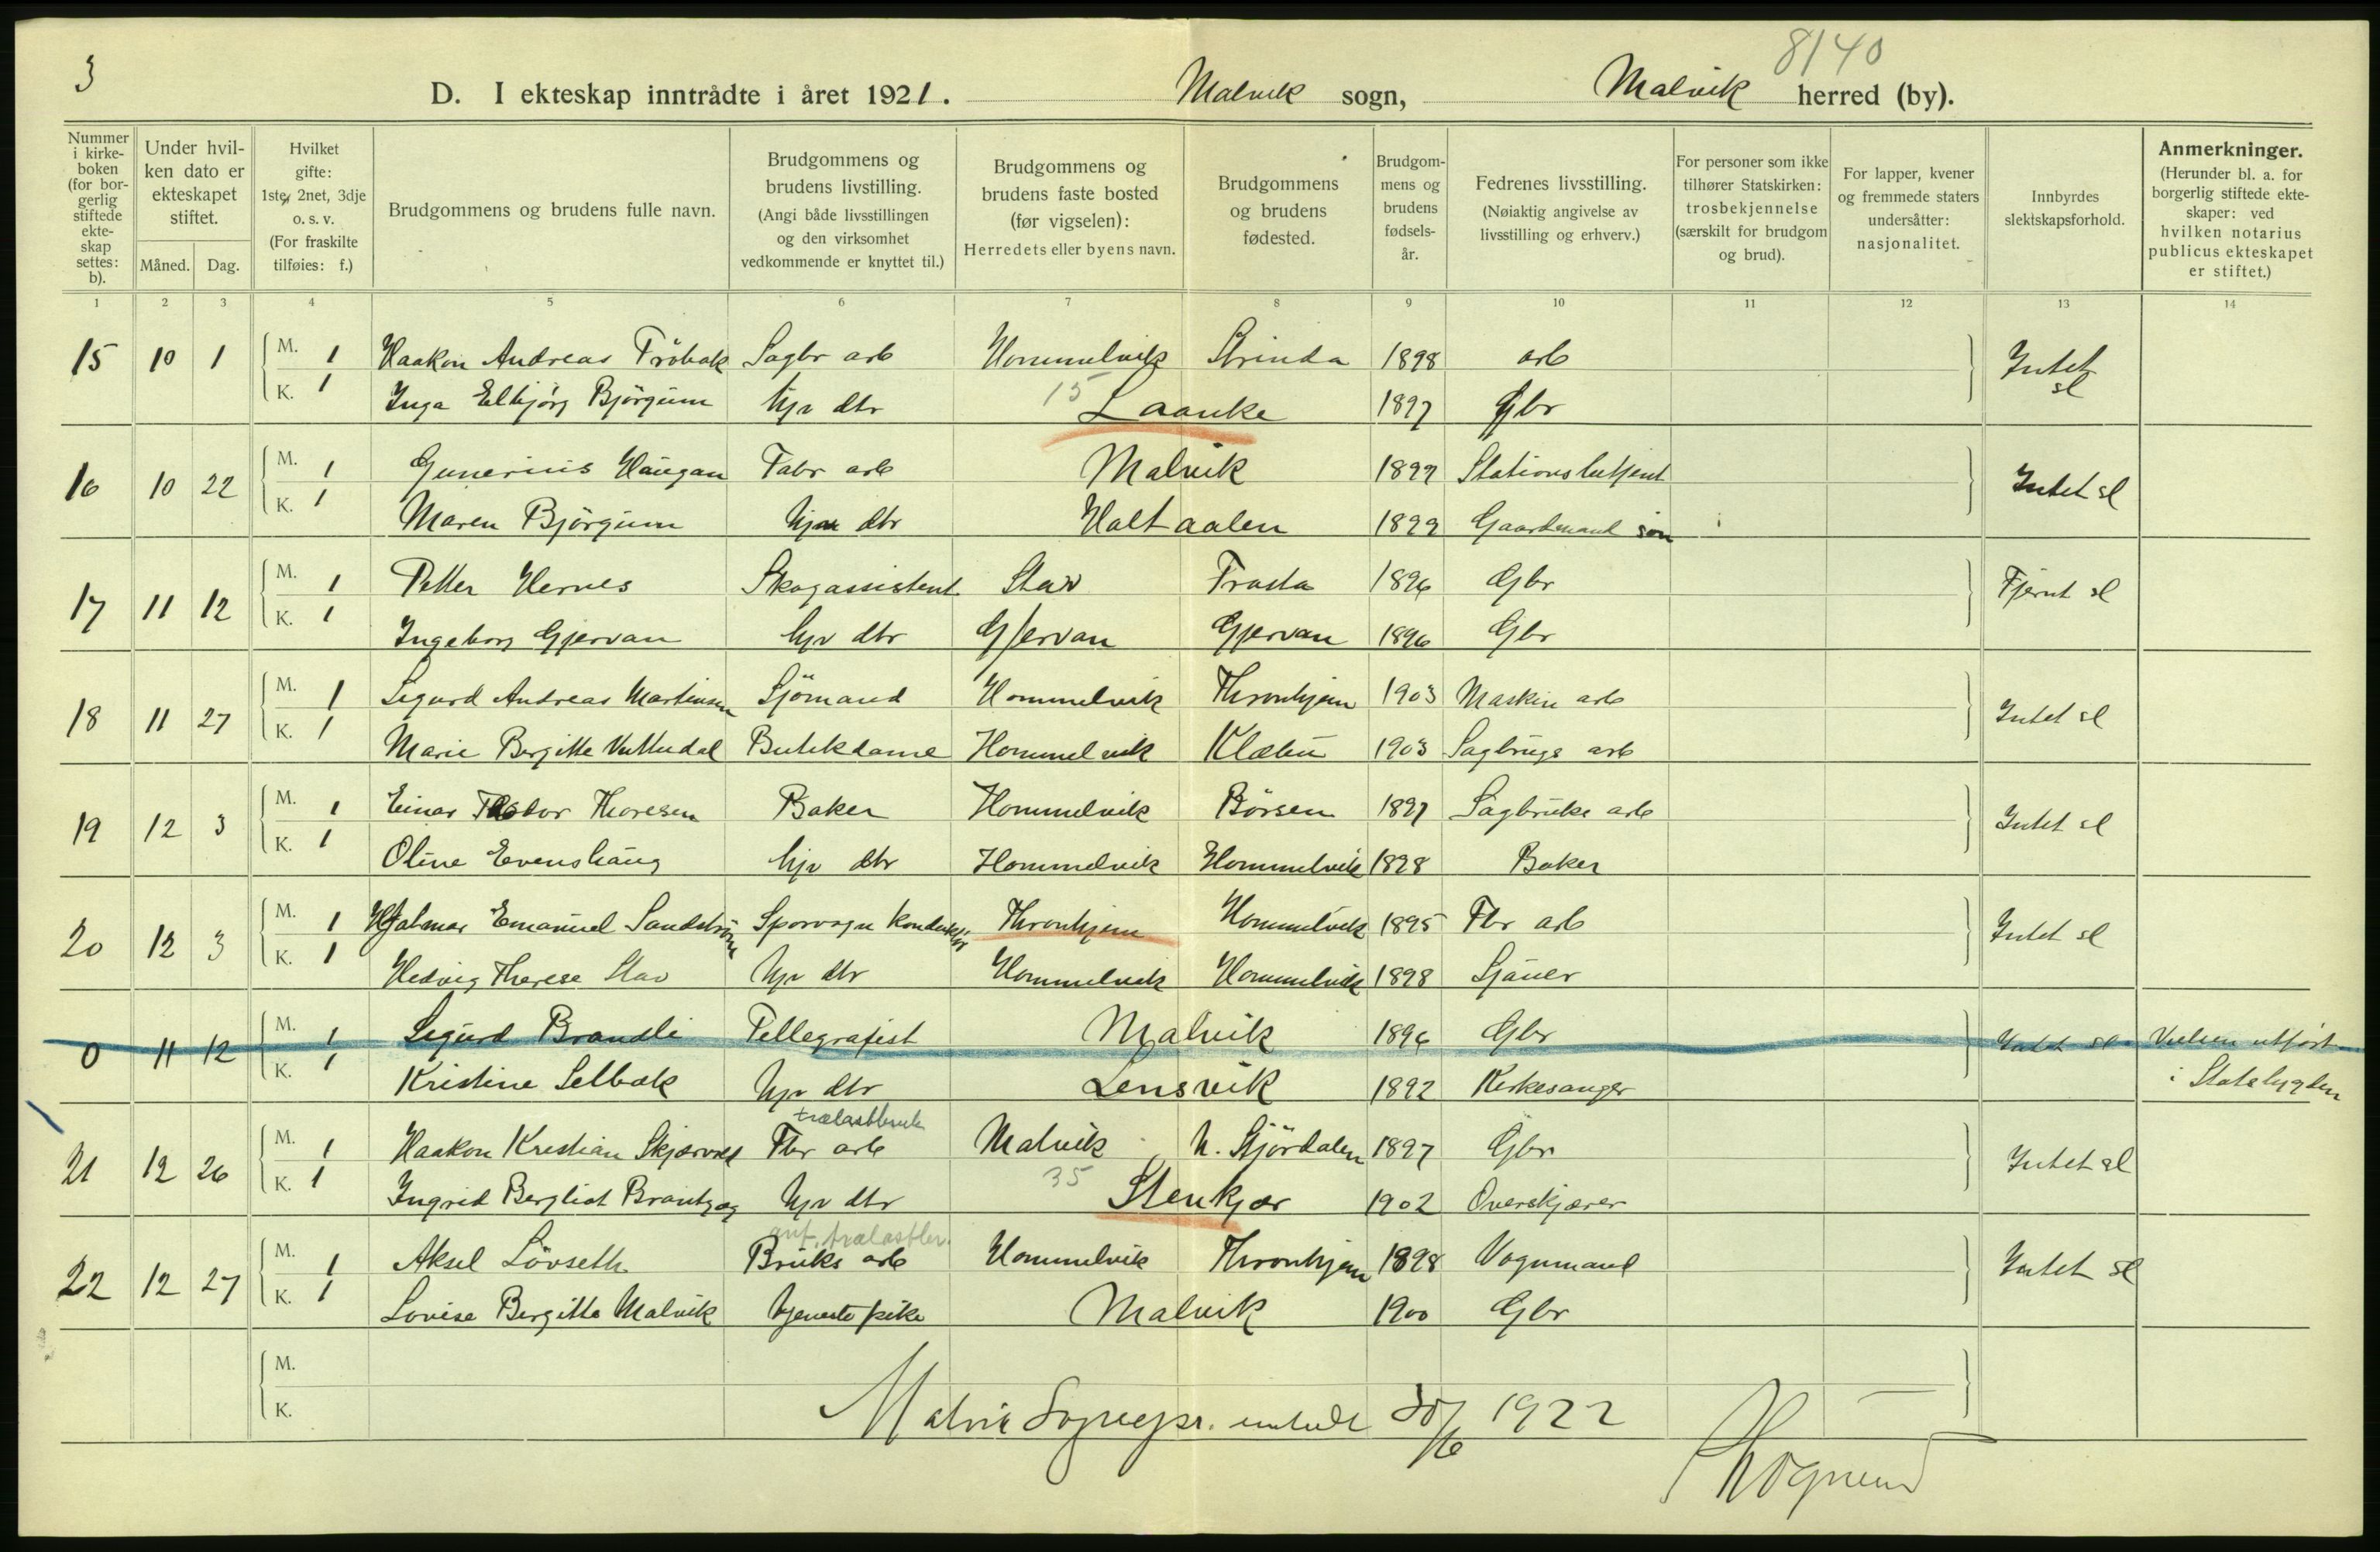 3
8140
D. I ekteskap inntrådte i året 1921. Malvik sogn, Malvik herred (by).
Nummer i kirke- boken (for bor- gerlig stiftede ekte- skap settes: b).
Under hvil- ken dato er ekteskapet stiftet.
Måned. Dag.
Hvilket gifte: 1ste, 2net, 3dje o. s. v. (For fraskilte tilføies: f.)
Brudgommens og brudens fulle navn.
Brudgommens og brudens livstilling. (Angi både livsstillingen og den virksomhet vedkommende er knyttet til.)
Brudgommens og brudens faste bosted (før vigselen): Herredets eller byens navn.
Brudgommens og brudens fødested.
Brudgom- mens og brudens fødsels- år.
Fedrenes livsstilling. (Nøiaktig angivelse av livsstilling og erhverv.)
For personer som ikke tilhører Statskirken: trosbekjennelse (særskilt for brudgom og brud).
For lapper, kvener og fremmede staters undersåtter: nasjonalitet.
Innbyrdes slektskapsforhold.
Anmerkninger. (Herunder bl. a. for borgerlig stiftede ekte- skaper: ved hvilken notarius publicus ekteskapet er stiftet.)
1 2 3 4 5 6 7 8 9 10 11 12 13 14
15 10 1 M. 1 Haakon Andreas Tröbak Sagbr arb Hommelvik Strinda 1898 arb Intet sl
K. 1 Inga Elbjörg Björgum hjr dtr 15 Laanke 1897 Gbr
16 10 22 M. 1 Gunerius Haugan Fabr arb Malvik 1899 Stationsbetjent Intet sl
K. 1 Maren Björgum hjr dtr Haltaalen 1899 Gaardmand søn
17 11 12 M. 1 Petter Hernes Skogassistent Stav Frosta 1896 Gbr Fjernt sl
K. 1 Ingeborg Gjervan hjr dtr Gjervan Gjervan 1896 Gbr
18 11 27 M. 1 Sigurd Andreas Martinsen Sjömand Hommelvik Thronhjem 1903 Maskin arb Intet sl
K. 1 Marie Bergitte Vuttudal Butikdame Hommelvik Klæbu 1903 Sagbrugs arb
19 12 3 M. 1 Einar Thoresen Baker Hommelvik Börsen 1897 Sagbruks arb Intet sl
K. 1 Oline Evenshaug hjr dtr Hommelvik Hommelvik 1898 Baker
20 12 3 M. 1 Hjalmar Emanuel Sandström Sporvogn konduktör Thronhjem Hommelvik 1895 Fbr arb Intet sl
K. 1 Hedvig Therese Stav hjr dtr Hommelvik Hommelvik 1898 Sjauer
0 11 12 M. 1 Sigurd Brandli Tellegrafist Malvik 1896 Gbr Intet sl Vielsen utfört
K. 1 Kristine Selbæk hjr dtr Lensvik 1892 Kirkesanger i Statsbygden
trælastbruk
21 12 26 M. 1 Haakon Kristian Skjærvold Fbr arb Malvik N. Stjördalen 1897 Gbr Intet sl
K. 1 Ingrid Bergliot Brantzæg hjr dtr 35 Stenkjær 1902 Overskjærer
ant. trælastbr.
22 12 27 M. 1 Aksel Lövseth Bruks arb Hommelvik Thronhjem 1898 Vognmand Intet sl
K. 1 Lovise Bergitte Malvik tjenestepike Malvik 1900 Gbr
M.
K.
Malvik Sogneprestembede 30/6 1922